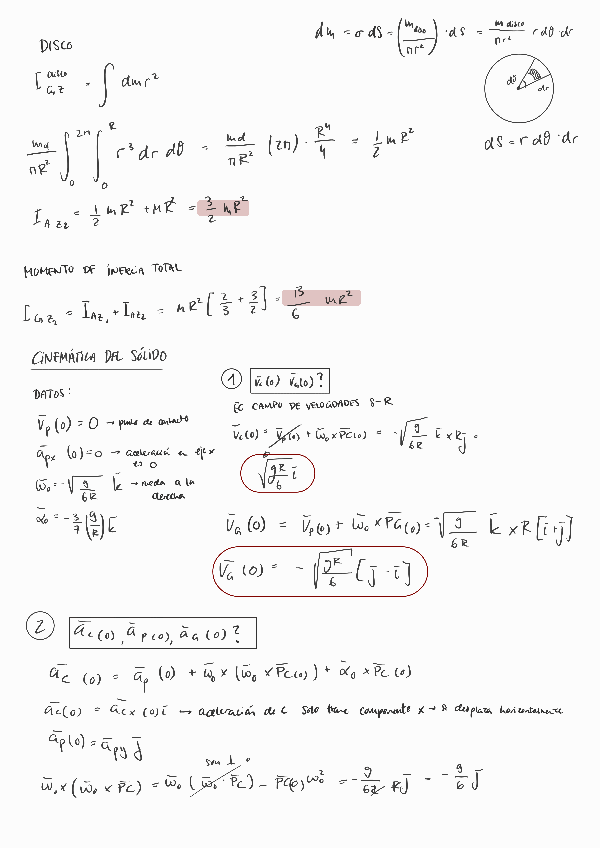 DISCO
dm = σ dS = (m_disco / πr²) · dS = m_disco / πr² r dθ · dr
I_Gz^disco = ∫ dm r²
dθ
dr
dS = r dθ · dr
md/πR² ∫₀^2π ∫₀^R r³ dr dθ = md/πR² (2π) · R⁴/4 = 1/2 mR²
I_Az₂ = 1/2 mR² + MR² = 3/2 mR²
MOMENTO DE INERCIA TOTAL
I_Gz₂ = I_Az₁ + I_Az₂ = mR² [2/3 + 3/2] = 13/6 mR²
CINEMÁTICA DEL SÓLIDO
DATOS:
v̄_P(0) = 0 → punto de contacto
ā_Px (0) = 0 → aceleración en eje x es 0
ω̄₀ = -√(g/6R) k̄ → rueda a la derecha
ᾱ₀ = -3/7 (g/R) k̄
1 v̄_c(0) v̄_G(0) ?
EC CAMPO DE VELOCIDADES S-R
v̄_c(0) = v̄_P(0) + ω̄₀ x P̄C(0) = -√(g/6R) k̄ x R j̄ =
√(gR/6) ī
v̄_G(0) = v̄_P(0) + ω̄₀ x P̄G(0) = -√(g/6R) k̄ x R [ī + j̄]
v̄_G(0) = -√(gR/6) [j̄ - ī]
2 ā_C(0), ā_P(0), ā_G(0) ?
ā_C (0) = ā_P (0) + ω̄₀ x (ω̄₀ x P̄C(0)) + ᾱ₀ x P̄C(0)
ā_C(0) = ā_Cx (0) ī → aceleración de C solo tiene componente x → se desplaza horizontalmente
ā_P(0) = ā_Py j̄
son ⊥ 0
ω̄₀ x (ω̄₀ x P̄C) = ω̄₀ (ω̄₀ · P̄C) - P̄C(0) ω₀² = -g/6R R j̄ = -g/6 j̄